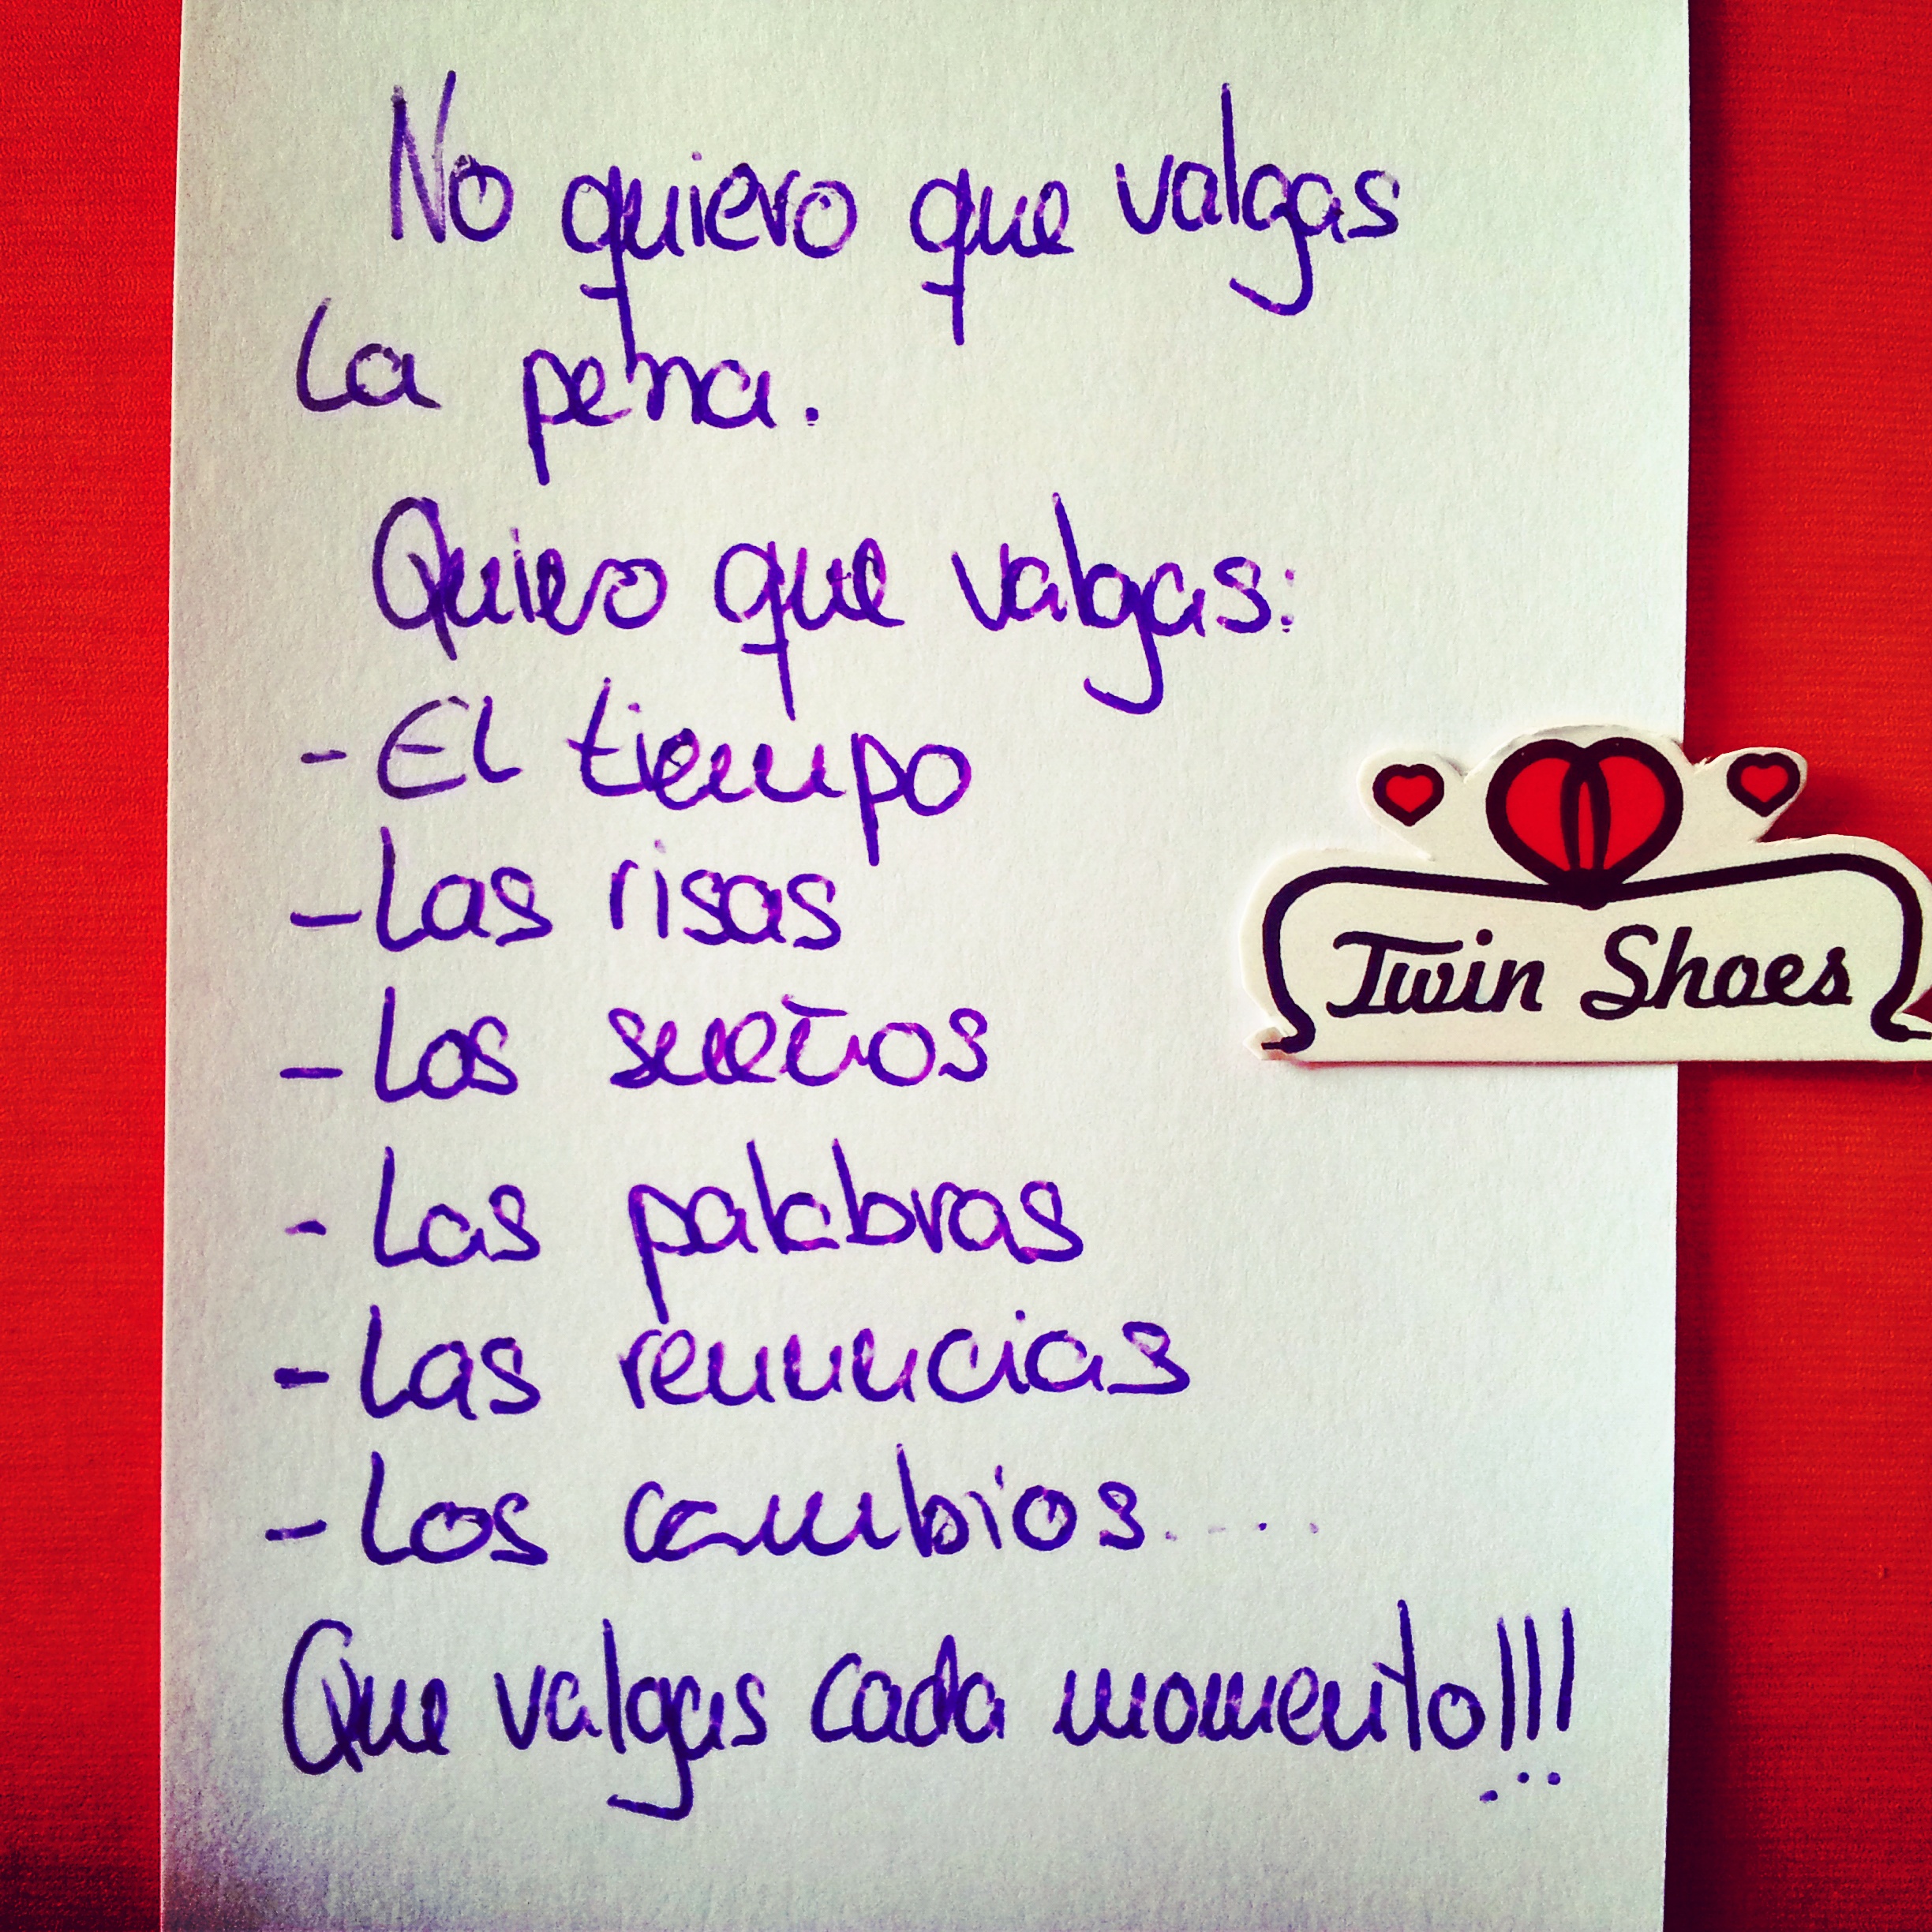 No quiero que valgas
la pena.
Quiero que valgas:
- El tiempo
- Las risas
- Los sueños
- Las palabras
- Las renuncias
- Los cambios.....
Que valgas cada momento!!!
Twin Shoes